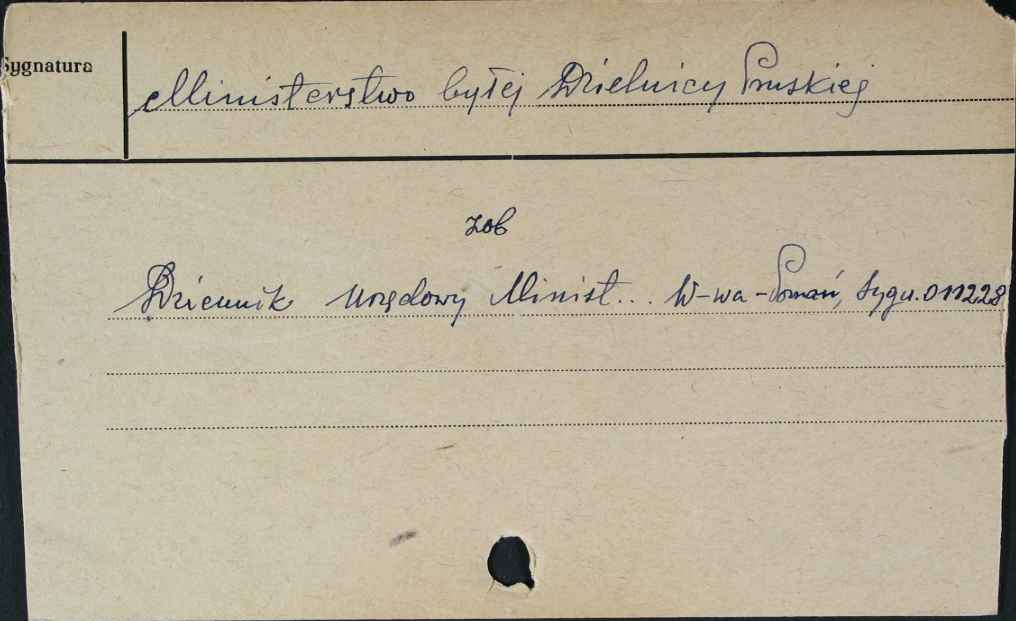 Sygnatura
Ministerstwo byłej Dzielnicy Pruskiej
zob
Dziennik Urzędowy Minist... W-wa-Poznań, Sygn. 011228